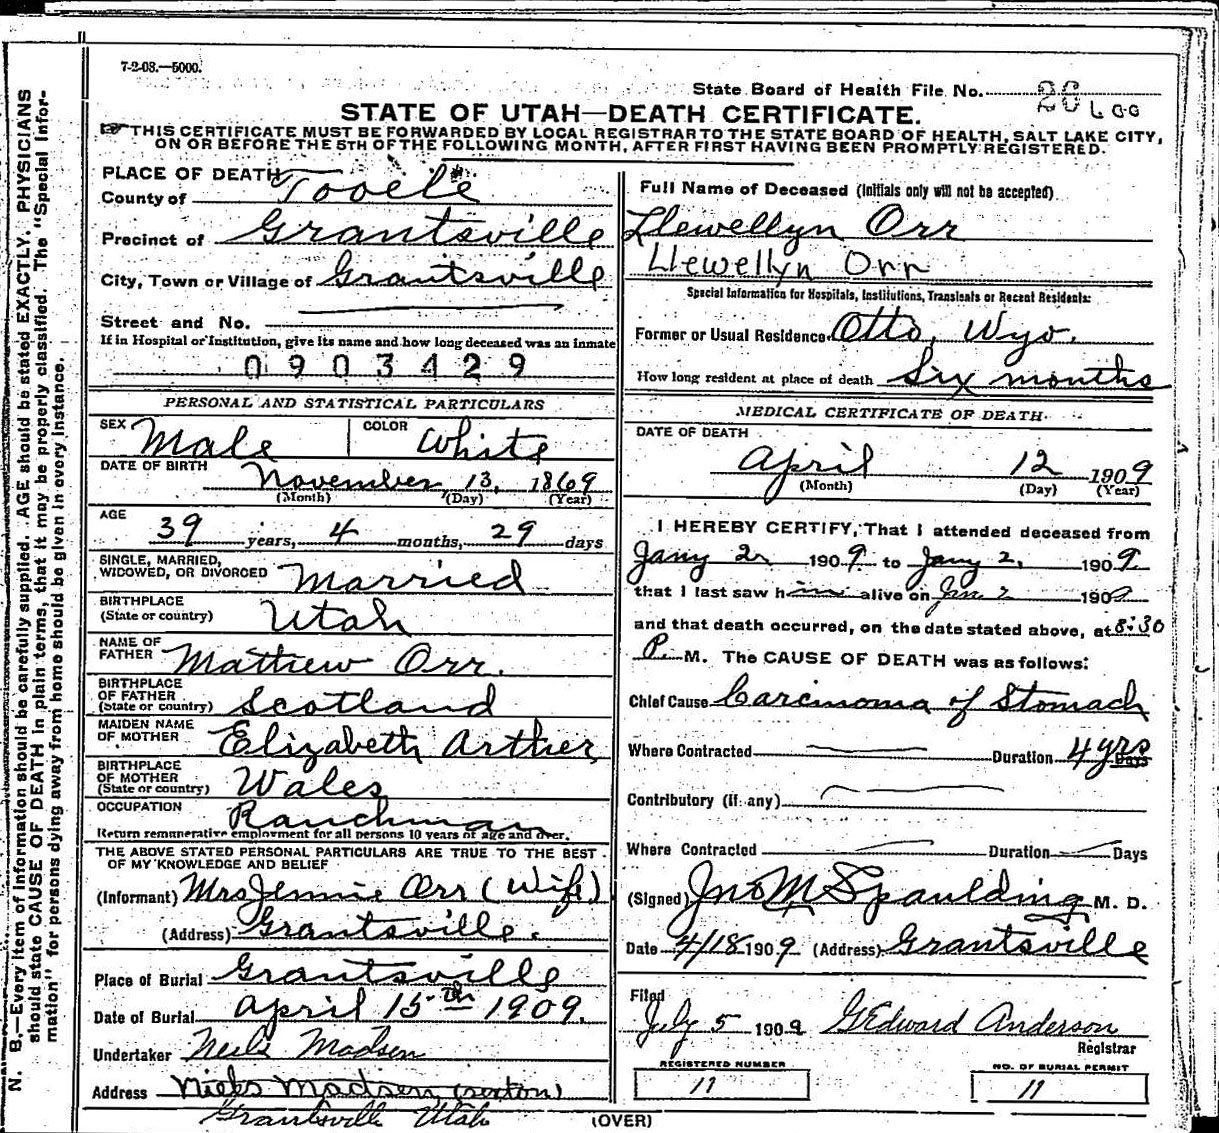 7-2-08.—5000.
State Board of Health File No. 26 Loo
STATE OF UTAH—DEATH CERTIFICATE.
☞ THIS CERTIFICATE MUST BE FORWARDED BY LOCAL REGISTRAR TO THE STATE BOARD OF HEALTH, SALT LAKE CITY,
ON OR BEFORE THE 5TH OF THE FOLLOWING MONTH, AFTER FIRST HAVING BEEN PROMPTLY REGISTERED.
N. B.—Every item of information should be carefully supplied. AGE should be stated EXACTLY. PHYSICIANS
should state CAUSE OF DEATH in plain terms, that it may be properly classified. The "Special Infor-
mation" for persons dying away from home should be given in every instance.
PLACE OF DEATH
County of Tooele
Precinct of Grantsville
City, Town or Village of Grantsville
Street and No.
If in Hospital or Institution, give its name and how long deceased was an inmate
0903429
PERSONAL AND STATISTICAL PARTICULARS
SEX Male COLOR White
DATE OF BIRTH November 13, 1869
(Month) (Day) (Year)
AGE 39 years, 4 months, 29 days
SINGLE, MARRIED,
WIDOWED, OR DIVORCED Married
BIRTHPLACE
(State or country) Utah
NAME OF
FATHER Mathew Orr.
BIRTHPLACE
OF FATHER
(State or country) Scotland
MAIDEN NAME
OF MOTHER Elizabeth Arther
BIRTHPLACE
OF MOTHER
(State or country) Wales
OCCUPATION Ranchman
Return remunerative employment for all persons 10 years of age and over.
THE ABOVE STATED PERSONAL PARTICULARS ARE TRUE TO THE BEST
OF MY KNOWLEDGE AND BELIEF
(Informant) Mrs Jennie Orr (Wife)
(Address) Grantsville.
Place of Burial Grantsville
Date of Burial April 15th 1909.
Undertaker Neils Madsen
Address Niels Madsen (sexton)
Grantsville Utah
Full Name of Deceased (Initials only will not be accepted)
Llewellyn Orr
Llewellyn Orr
Special Information for Hospitals, Institutions, Transients or Recent Residents:
Former or Usual Residence Otto, Wyo.
How long resident at place of death Six months
MEDICAL CERTIFICATE OF DEATH
DATE OF DEATH
April 12 1909
(Month) (Day) (Year)
I HEREBY CERTIFY, That I attended deceased from
Jany 2 1909. to Jany 2, 1909.
that I last saw him alive on Jan 2 1909
and that death occurred, on the date stated above, at 8:30
P. M. The CAUSE OF DEATH was as follows:
Chief Cause Carcinoma of Stomach
Where Contracted Duration 4 yrs Days
Contributory (if any)
Where Contracted Duration Days
(Signed) Jno M Spaulding M. D.
Date 4/18 1909. (Address) Grantsville
Filed
July 5 1909 G Edward Anderson
Registrar
REGISTERED NUMBER
11
NO. OF BURIAL PERMIT
11
(OVER)